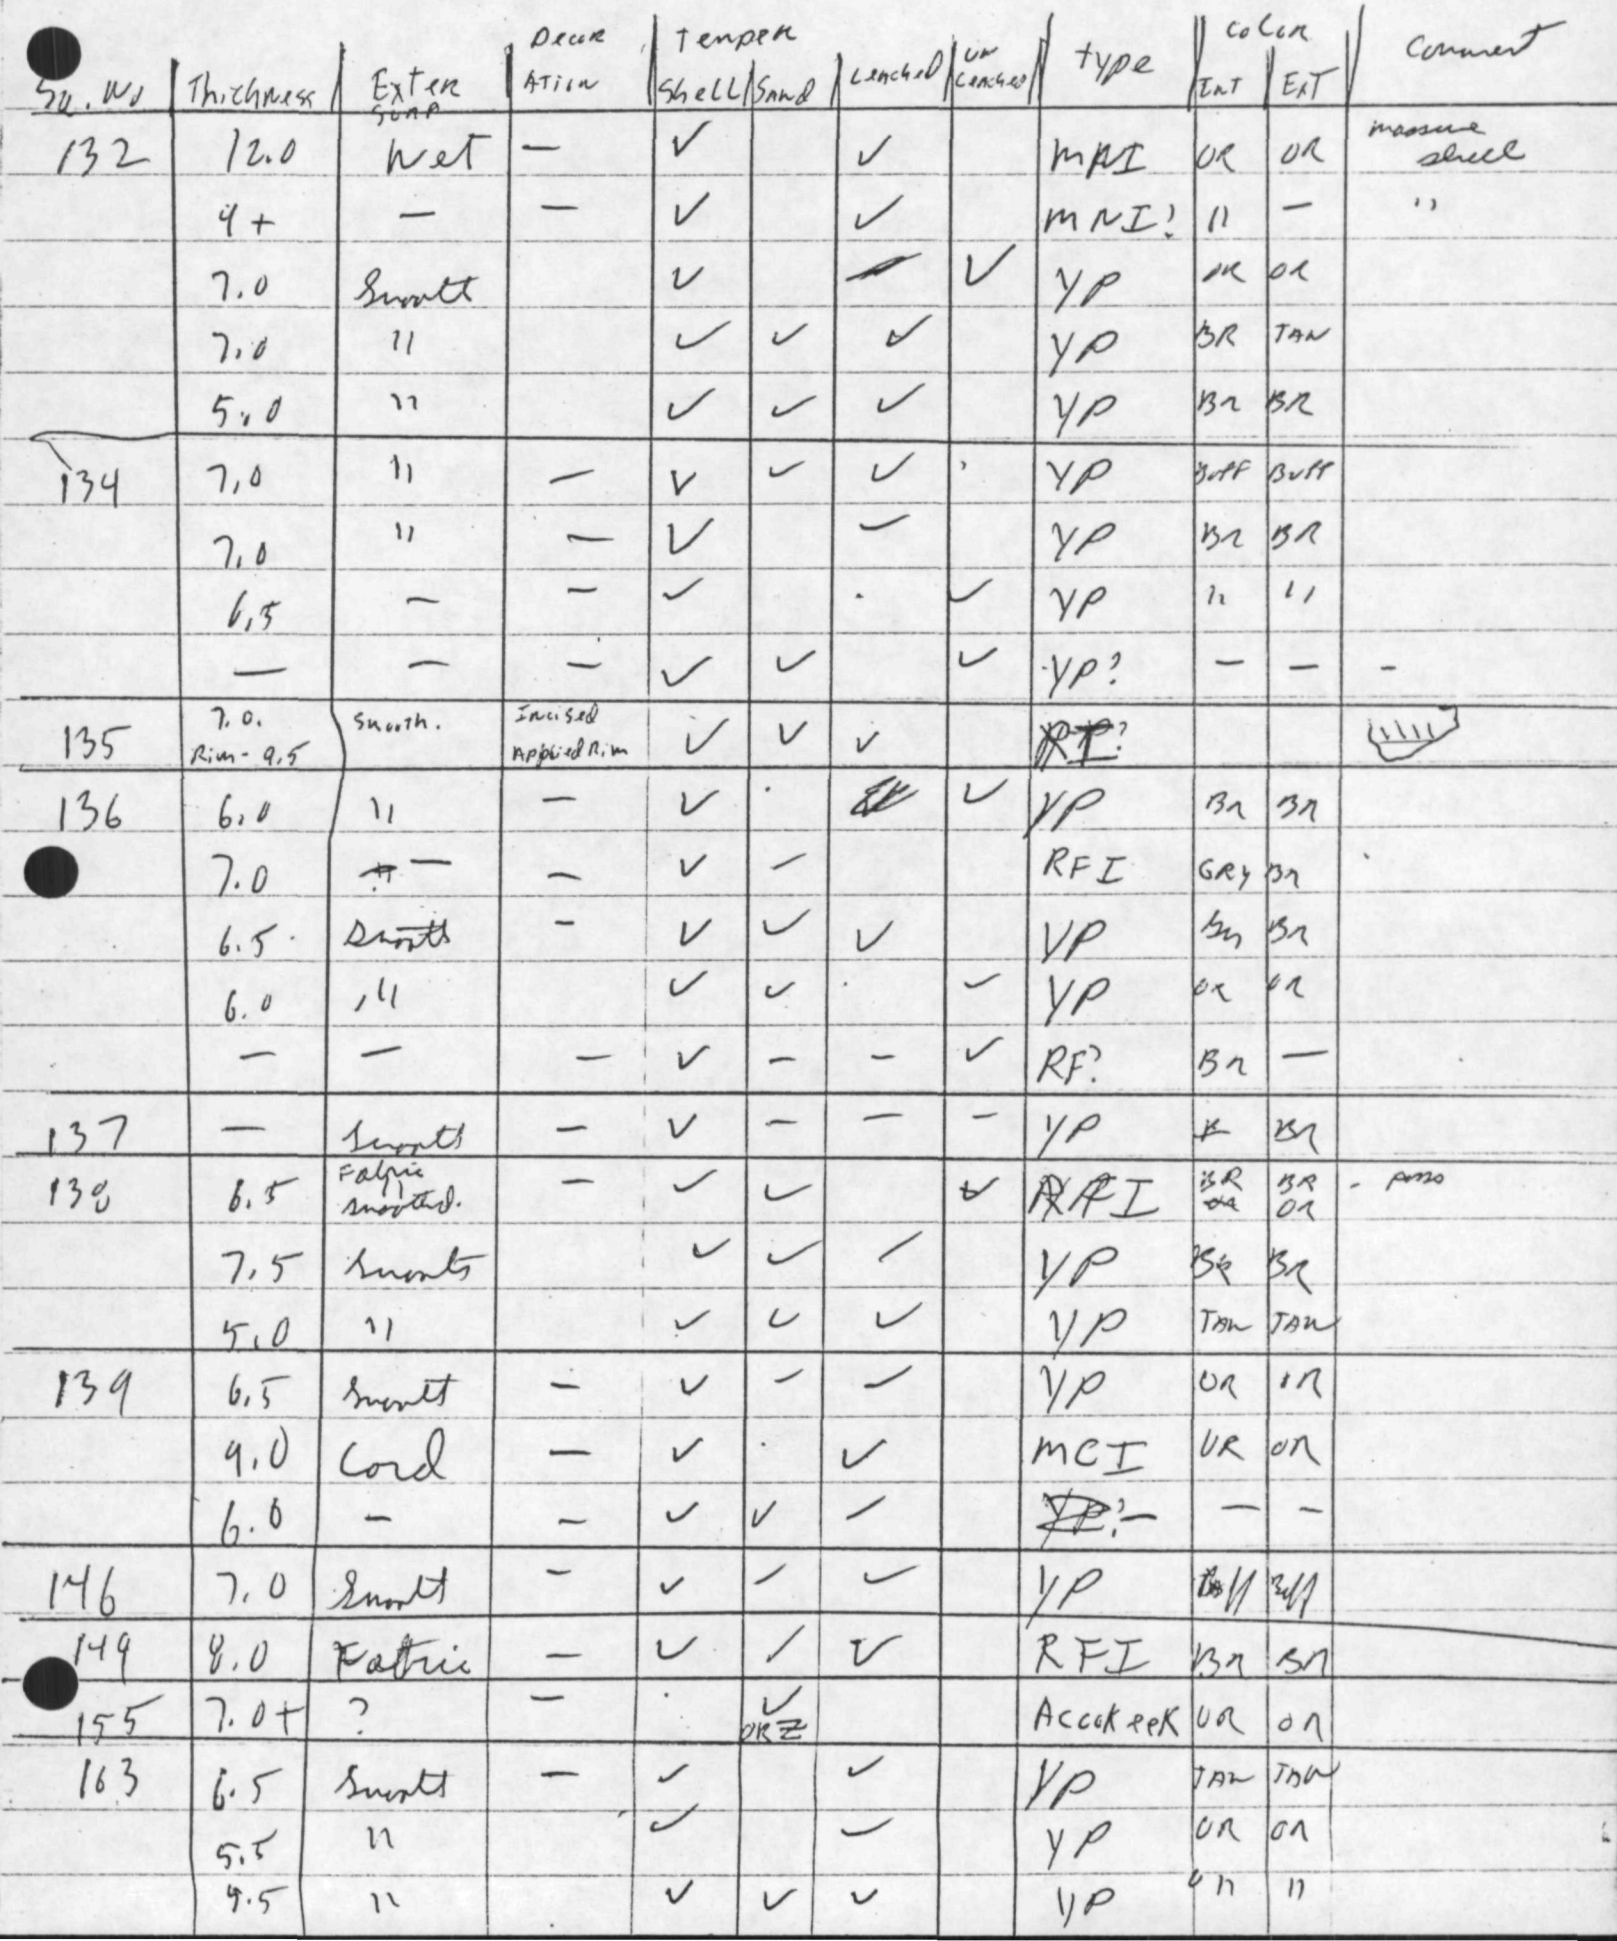 Decor Temper Color
Sq. No Thickness Exter Surf Ation Shell Sand Leached Un Leached Type Int Ext Comment
132 12.0 Net — ✓ ✓ MNI OR OR massive shell
9+ — — ✓ ✓ MNI? " — "
7.0 Smooth ✓ ✓ YP OR OR
7.0 " ✓ ✓ ✓ YP BR TAN
5.0 " ✓ ✓ ✓ YP BR BR
134 7.0 " — ✓ ✓ ✓ YP Buff Buff
7.0 " — ✓ ✓ YP BR BR
6.5 — — ✓ ✓ YP " "
— — — ✓ ✓ ✓ YP? — — -
135 7.0. Smooth. Incised ✓ ✓ ✓
Rim - 9.5 Applied Rim
136 6.0 " — ✓ ✓ YP BR BR
7.0 — — ✓ ✓ RFI GRY BR
6.5 Smooth - ✓ ✓ ✓ YP BR BR
6.0 " ✓ ✓ ✓ YP OR OR
— — — ✓ — — ✓ RF? BR —
137 — Smooth — ✓ — — — YP BR
138 6.5 Fabric smoothed. — ✓ ✓ ✓ RFI BR BR OR
7.5 Smooth ✓ ✓ ✓ YP BR BR
5.0 " ✓ ✓ ✓ YP TAN TAN
139 6.5 Smooth — ✓ ✓ ✓ YP OR OR
9.0 Cord — ✓ ✓ MCI OR OR
6.0 — — ✓ ✓ ✓ — — —
146 7.0 Smooth — ✓ ✓ ✓ YP Buff Buff
149 8.0 Fabric — ✓ ✓ ✓ RFI BR BR
155 7.0+ ? — ✓ Accokeek OR OR
163 6.5 Smooth — ✓ ✓ YP TAN TAN
5.5 " ✓ ✓ YP OR OR
9.5 " ✓ ✓ ✓ YP " "